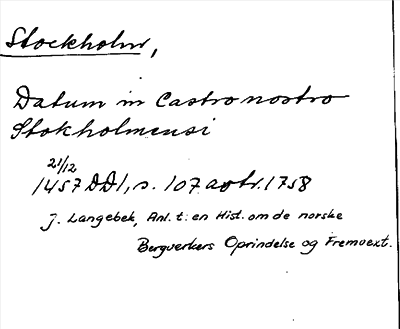 Stockholm,
Datum in Castro nostro
Stokholmensi
21/12
1457 DD1, s. 107 avtr. 1758
J. Langebek, Anl. t: en Hist. om de norske
Bergverkers Oprindelse og Fremvext.